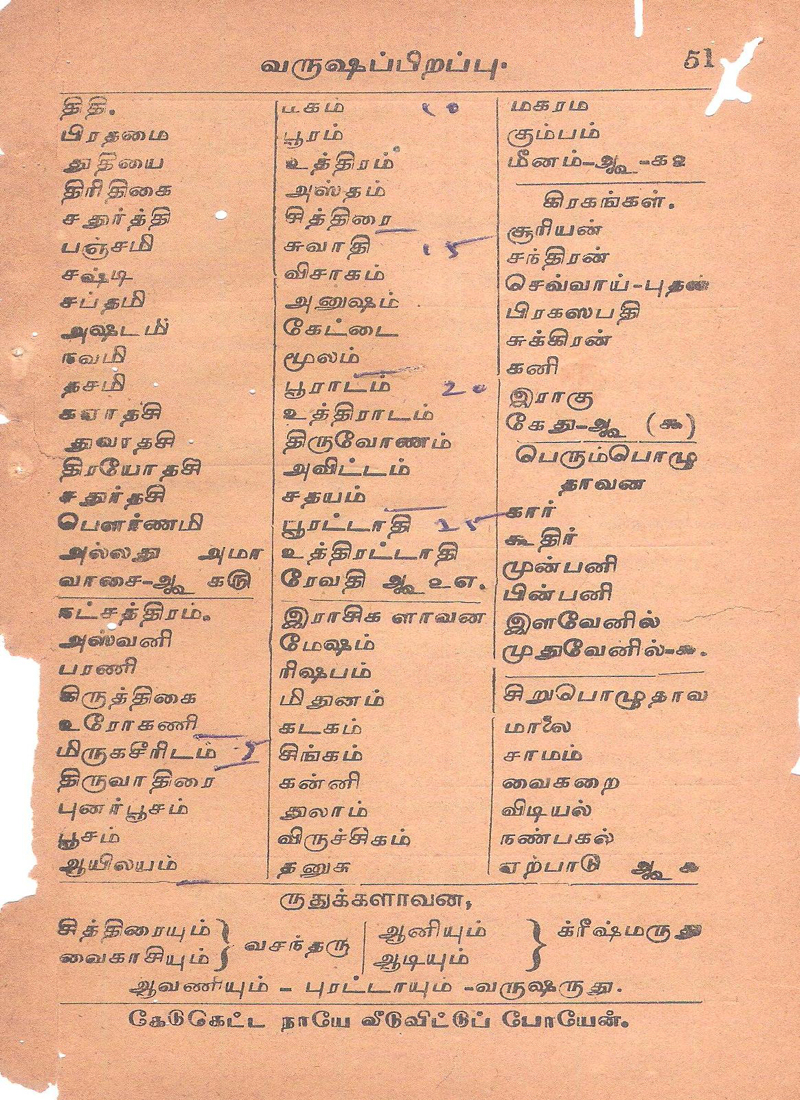 வருஷப்பிறப்பு.
51
திதி.
பிரதமை
துதியை
திரிதிகை
சதுர்த்தி
பஞ்சமி
சஷ்டி
சப்தமி
அஷ்டமி
நவமி
தசமி
ஏகாதசி
துவாதசி
திரயோதசி
சதுர்தசி
பௌர்ணமி
அல்லது அமா
வாசை-ஆ௯ கரு
நட்சத்திரம்.
அஸ்வனி
பரணி
கிருத்திகை
உரோகணி
மிருகசீரிடம் 5
திருவாதிரை
புனர்பூசம்
பூசம்
ஆயிலயம்
மகம் 10
பூரம்
உத்திரம்
அஸ்தம்
சித்திரை
சுவாதி 15
விசாகம்
அனுஷம்
கேட்டை
மூலம்
பூராடம் 20
உத்திராடம்
திருவோணம்
அவிட்டம்
சதயம்
பூரட்டாதி 25
உத்திரட்டாதி
ரேவதி ஆ௯ ௨௭.
இராசிக ளாவன
மேஷம்
ரிஷபம்
மிதுனம்
கடகம்
சிங்கம்
கன்னி
துலாம்
விருச்சிகம்
தனுசு
மகரம
கும்பம்
மீனம்-ஆ௯-க௨
கிரகங்கள்.
சூரியன்
சந்திரன்
செவ்வாய்-புதன்
பிரகஸபதி
சுக்கிரன்
கனி
இராகு
கேது-ஆ௯ (௯)
பெரும்பொழு
தாவன
கார்
கூதிர்
முன்பனி
பின்பனி
இளவேனில்
முதுவேனில்-௬.
சிறுபொழுதாவ
மாலை
சாமம்
வைகறை
விடியல்
நண்பகல்
ஏற்பாடு ஆ௯ ௬
ருதுக்களாவன,
சித்திரையும் } வசந்தரு | ஆனியும் } க்ரீஷ்மருது
வைகாசியும் ஆடியும்
ஆவணியும் - புரட்டாயும் -வருஷருது.
கேடுகெட்ட நாயே வீடுவிட்டுப் போயேன்.